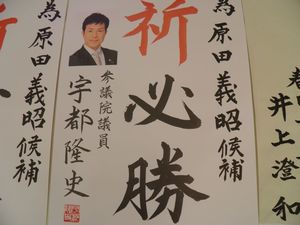 為原田義昭候補
祈必勝
参議院議員
宇都隆史
為原田義昭候補
井上澄和